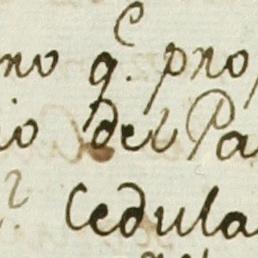 no q.e pro
io del Pa
Cedula